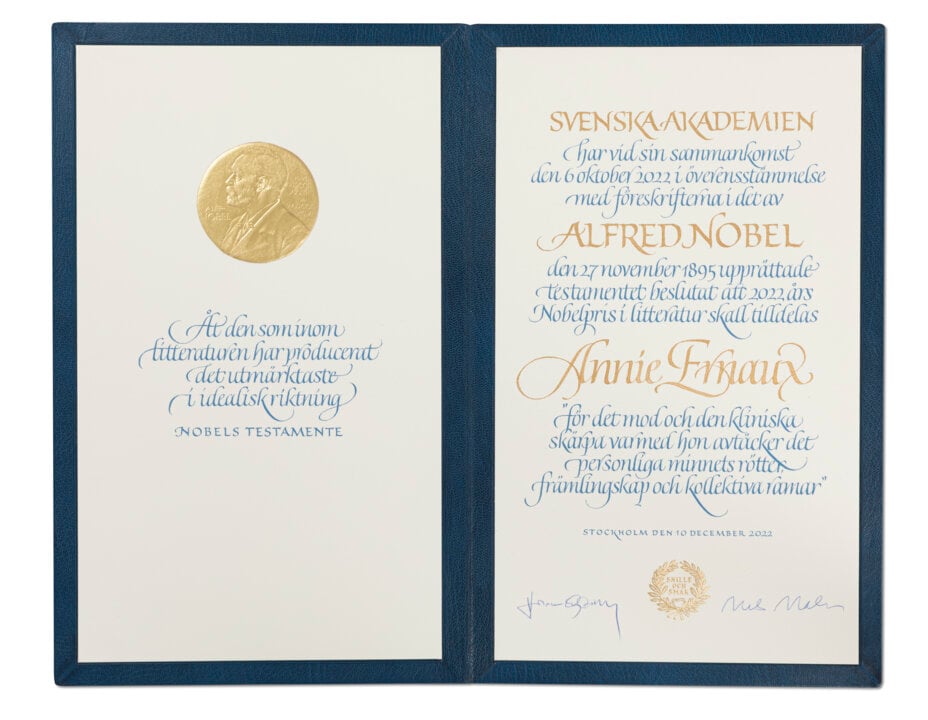 Åt den som inom
litteraturen har producerat
det utmärktaste
i idealisk riktning
NOBELS TESTAMENTE
SVENSKA AKADEMIEN
har vid sin sammankomst
den 6 oktober 2022 i överensstämmelse
med föreskrifterna i det av
ALFRED NOBEL
den 27 november 1895 upprättade
testamentet beslutat att 2022 års
Nobelpris i litteratur skall tilldelas
Annie Ernaux
"för det mod och den kliniska
skärpa varmed hon avtäcker det
personliga minnets rötter,
främlingskap och kollektiva ramar"
STOCKHOLM DEN 10 DECEMBER 2022
SNILLE
OCH
SMAK